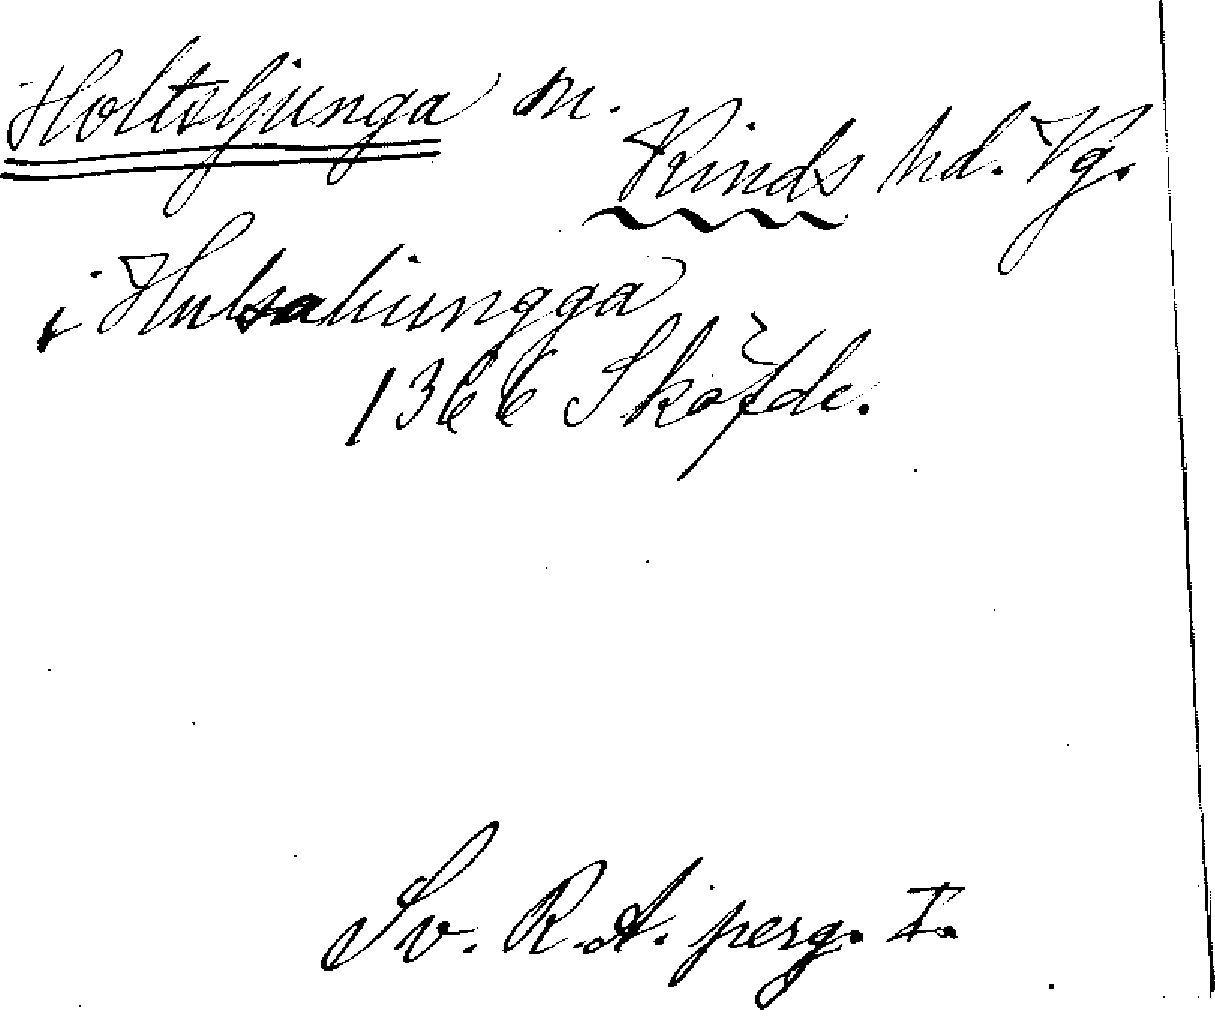 Holtsljunga sn.
Kinds hd. Vg.
i Hulsaliungga
1366 Sköfde.
Sv. R.A. perg. I.